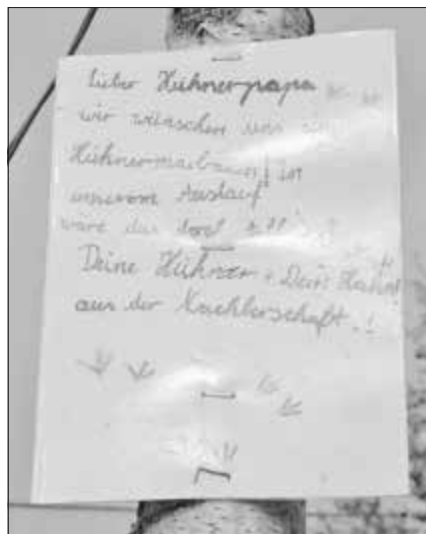 Lieber Hühnerpapa
wir wünschen uns
Hühnermaibaum! In
unserem Auslauf
wäre das toll
Deine Hühner + Dein Hahn!
aus der